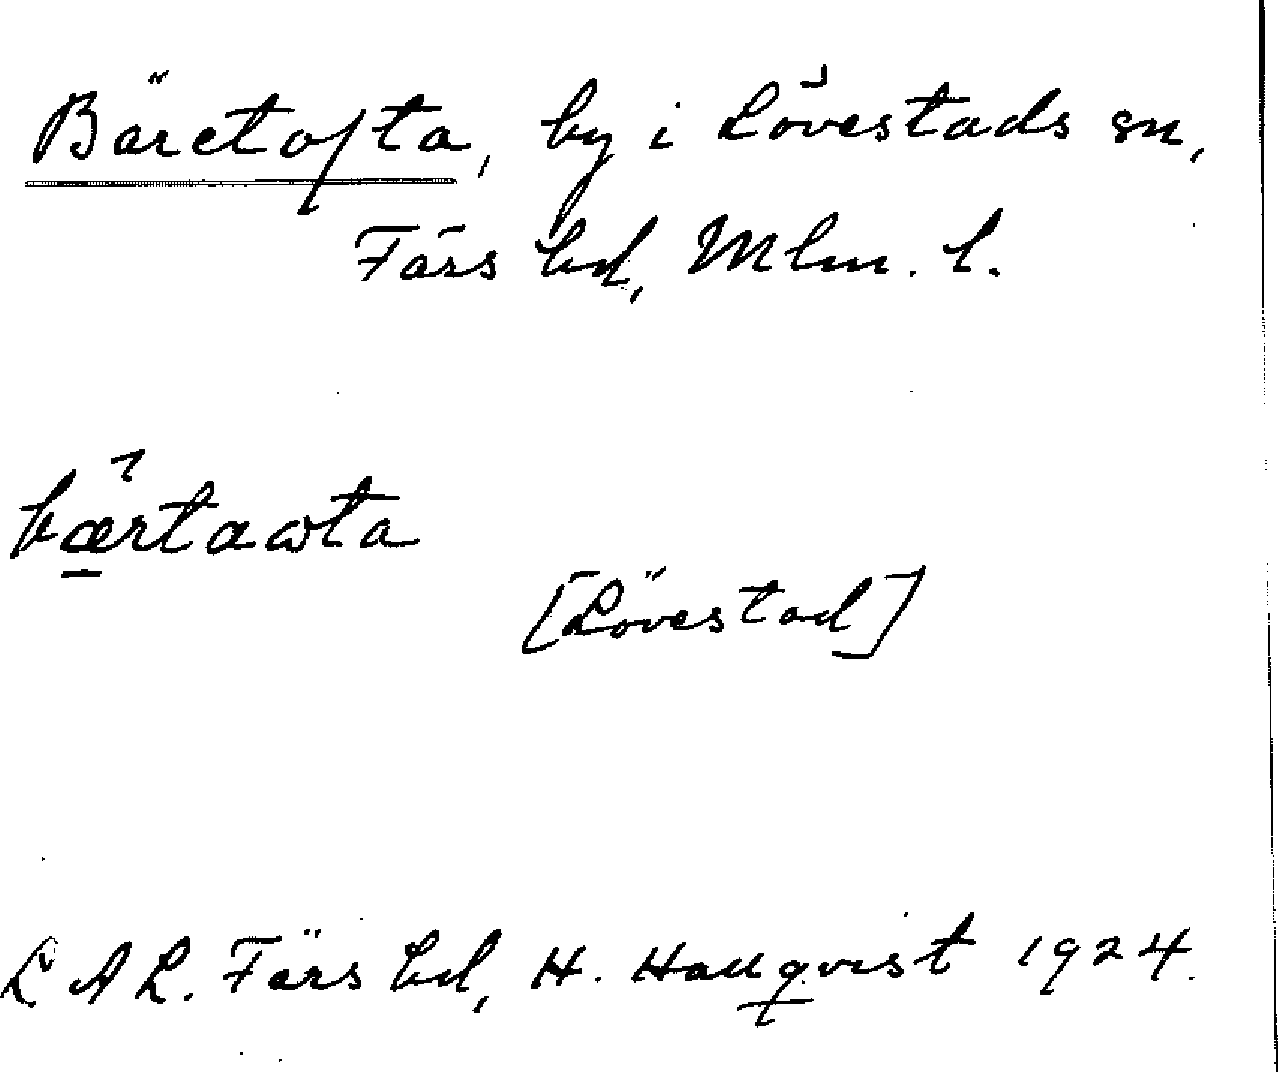 Bäretofta, by i Lövestads sn,
Färs hd, Mlm. l.
bærtaωta
[Lövestad]
L A L. Färs hd, H. Hallqvist 1924.